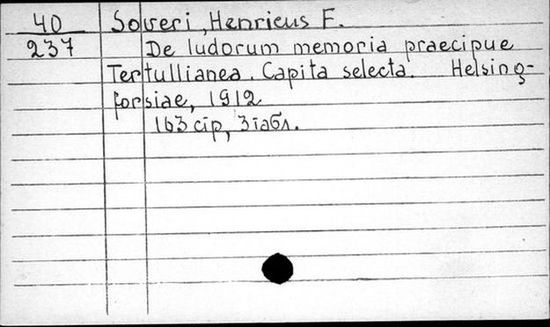 40 Soveri, Henricus F.
237 De ludorum memoria praecipue
Tertullianea. Capita selecta. Helsing-
forsiae, 1912
163 cip, 3 табл.